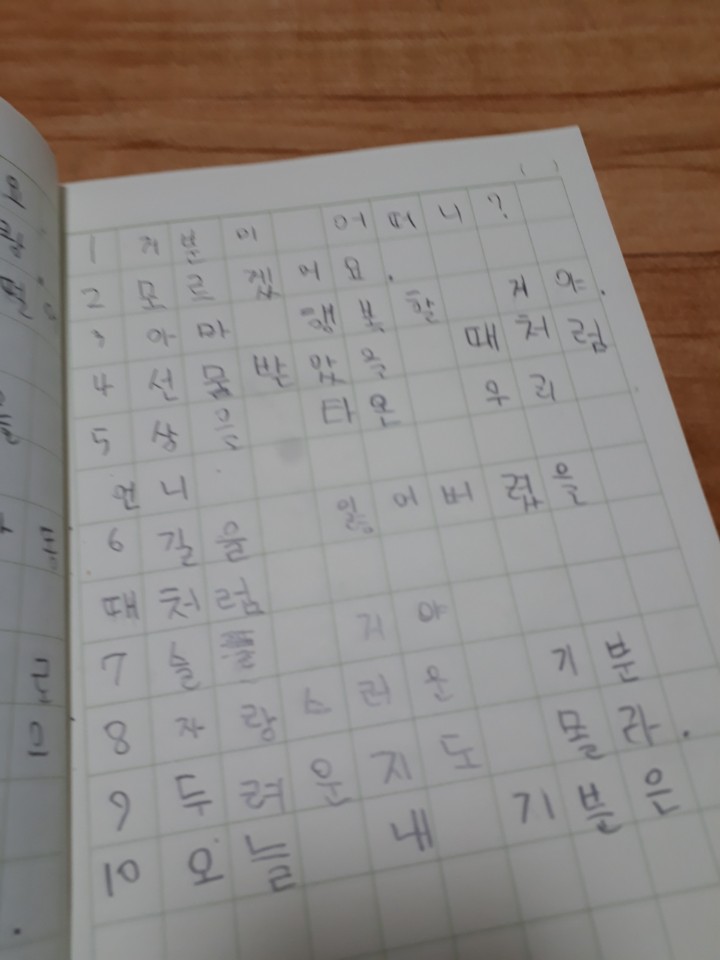 1 기분이 어떠니?
2 모르겠어요.
3 아마 행복할 거야.
4 선물받았을 때처럼
5 상을 타온 우리
언니
6 길을 잃어버렸을
때처럼
7 슬플 거야
8 자랑스러운 기분
9 두려운지도 몰라.
10 오늘 내 기분은